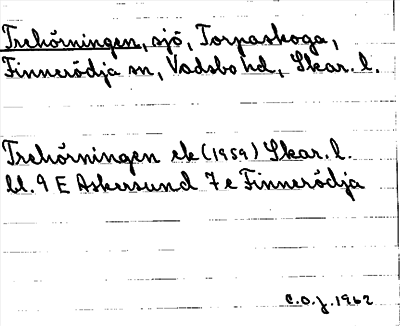 Trehörningen, sjö, Torpaskoga,
Finnerödja sn, Vadsbo hd, Skar. l.
Trehörningen ek (1959) Skar. l.
bl. 9 E Askersund 7 e Finnerödja
C.O.J. 1962